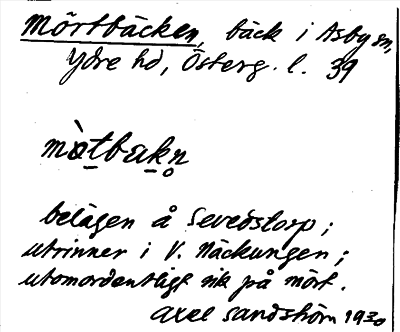 Mörtbäcken, bäck i Asby sn,
Ydre hd, Österg. l. 39
mò̱tbaḵn̥
belägen å Sevedstorp;
utrinner i V. Näckungen;
utomordentligt rik på mört.
Axel Sandström 1930